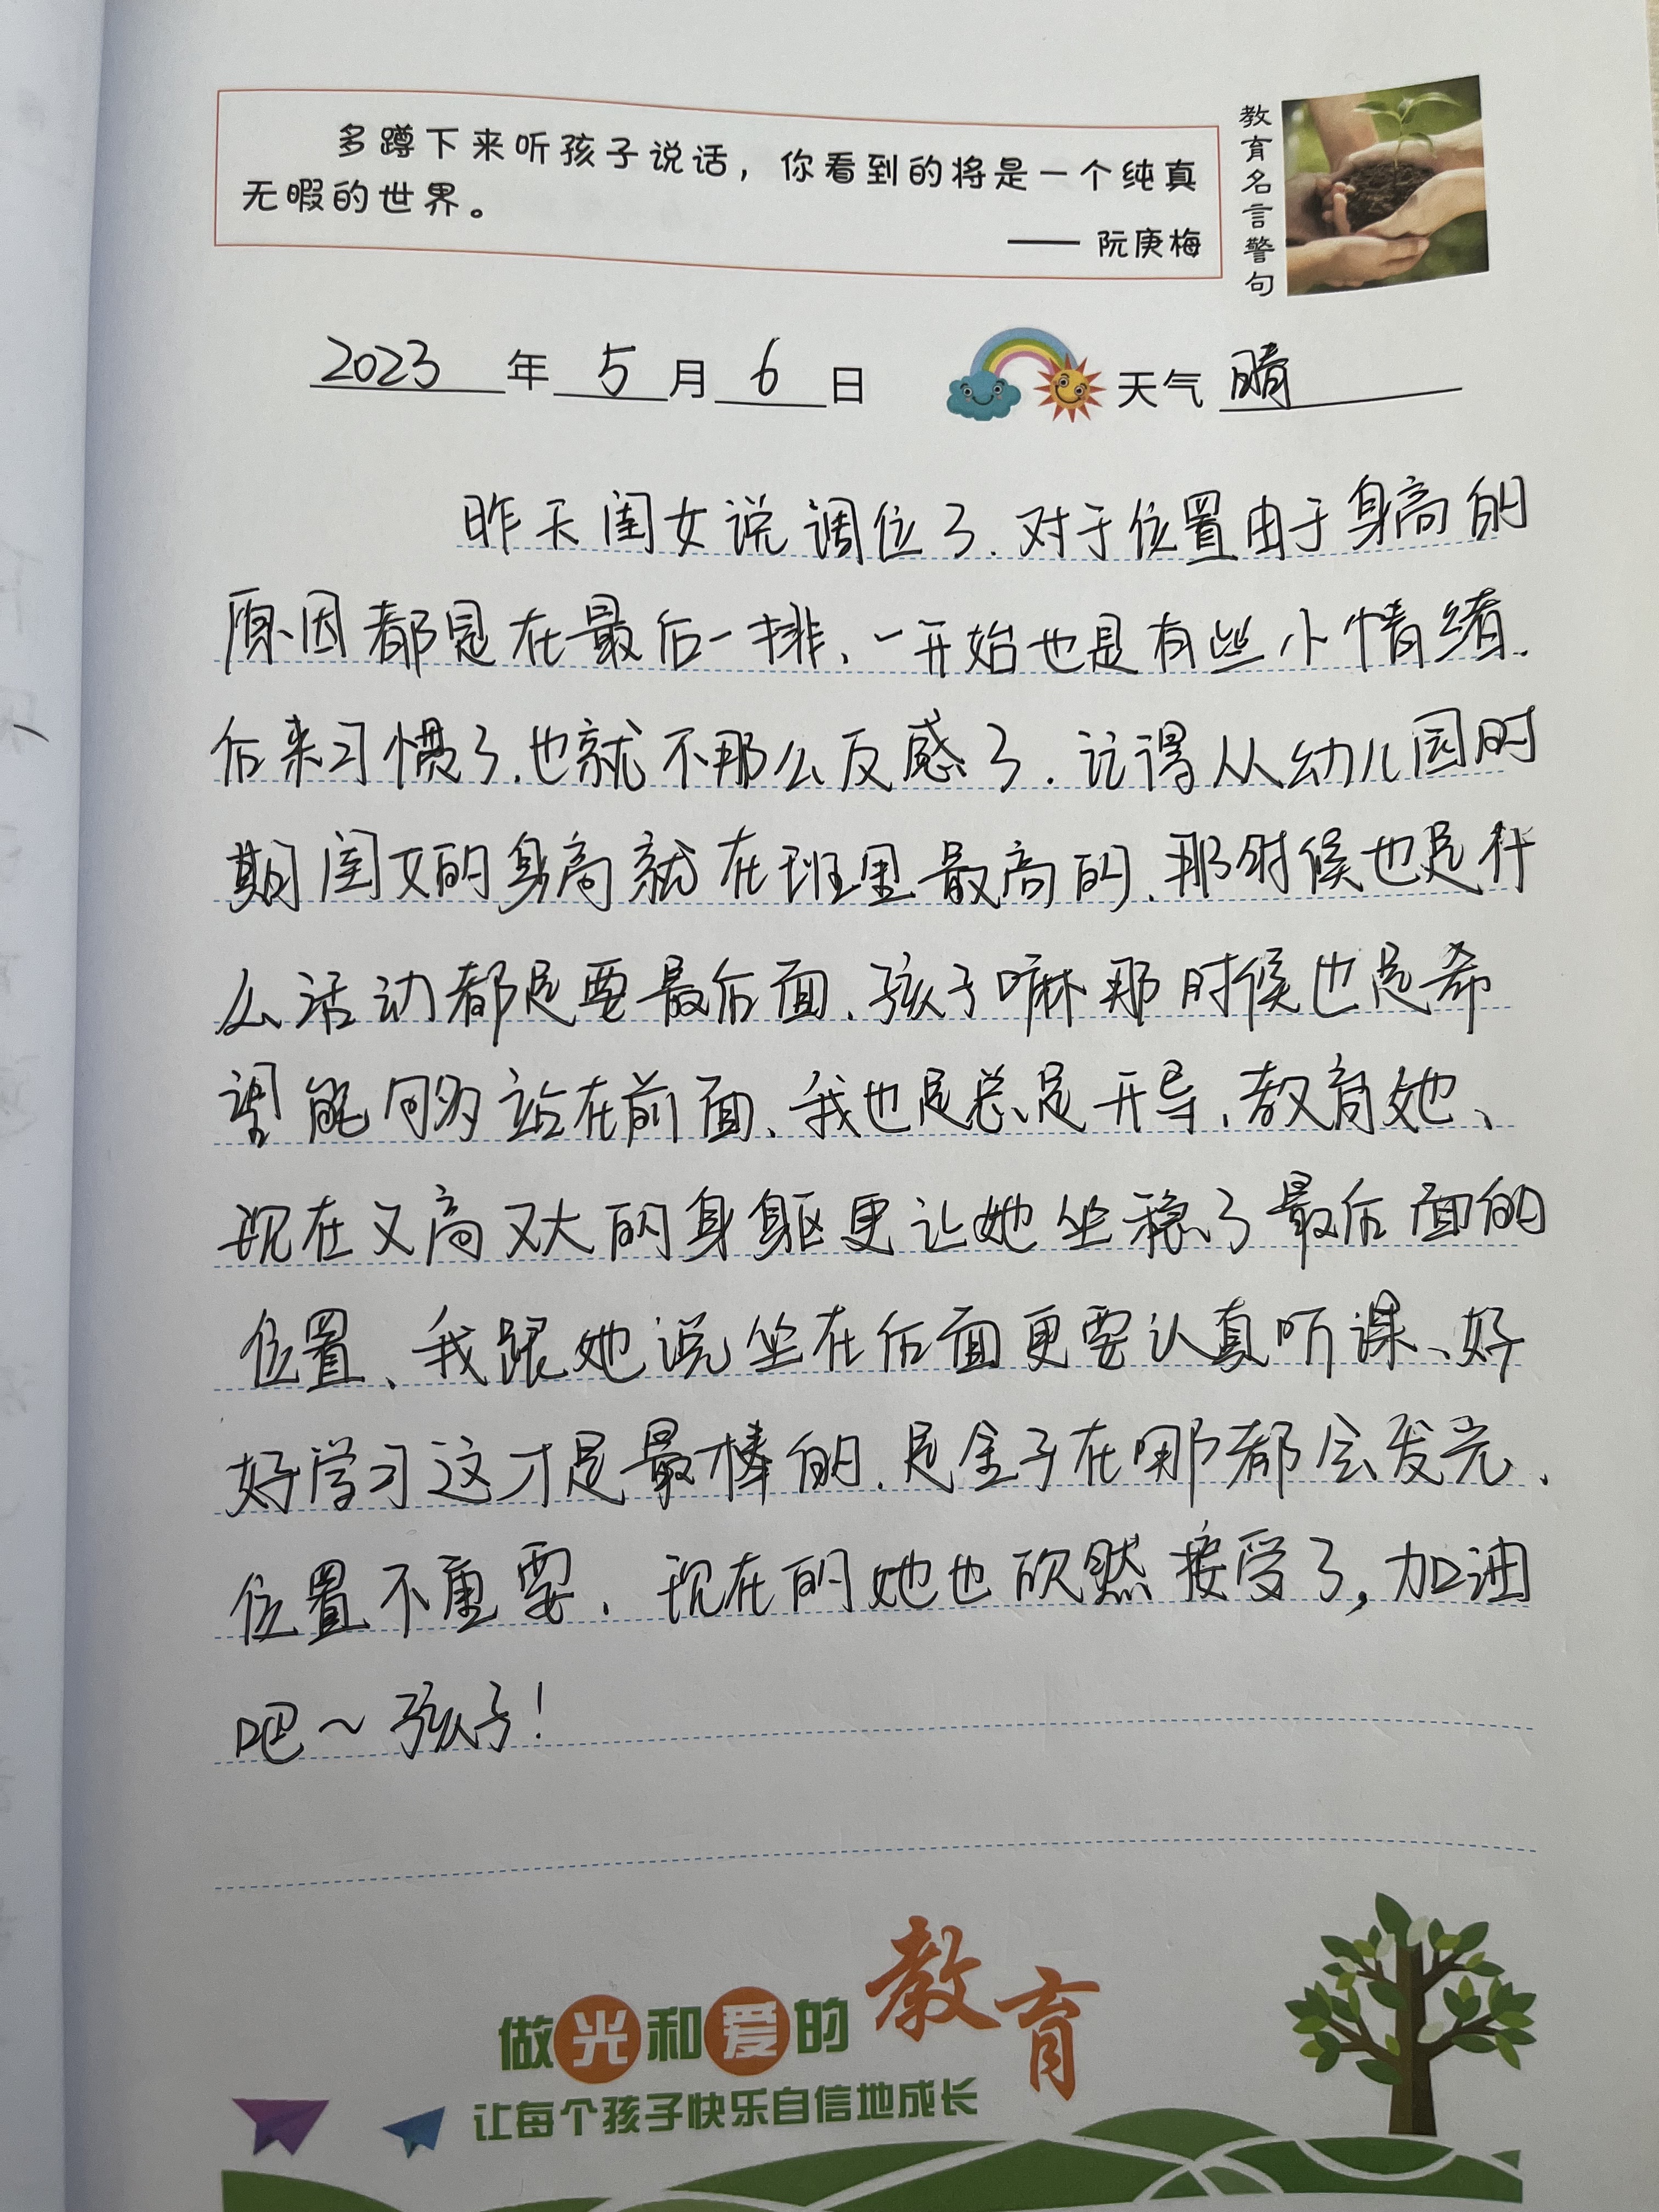 多蹲下来听孩子说话，你看到的将是一个纯真
无暇的世界。
—— 阮庚梅
教育名言警句
2023 年 5 月 6 日 天气 晴
昨天闺女说调位了.对于位置由于身高的
原因都是在最后一排、一开始也是有些小情绪.
后来习惯了.也就不那么反感了.记得从幼儿园时
期闺女的身高就在班里最高的.那时候也是什
么活动都是要最后面.孩子嘛那时候也是希
望能够站在前面、我也是总是开导.教育她、
现在又高又大的身躯更让她坐稳了最后面的
位置、我跟她说坐在后面更要认真听课、好
好学习这才是最棒的.是金子在哪都会发光.
位置不重要.现在的她也欣然接受了,加油
吧～孩子!
做光和爱的教育
让每个孩子快乐自信地成长